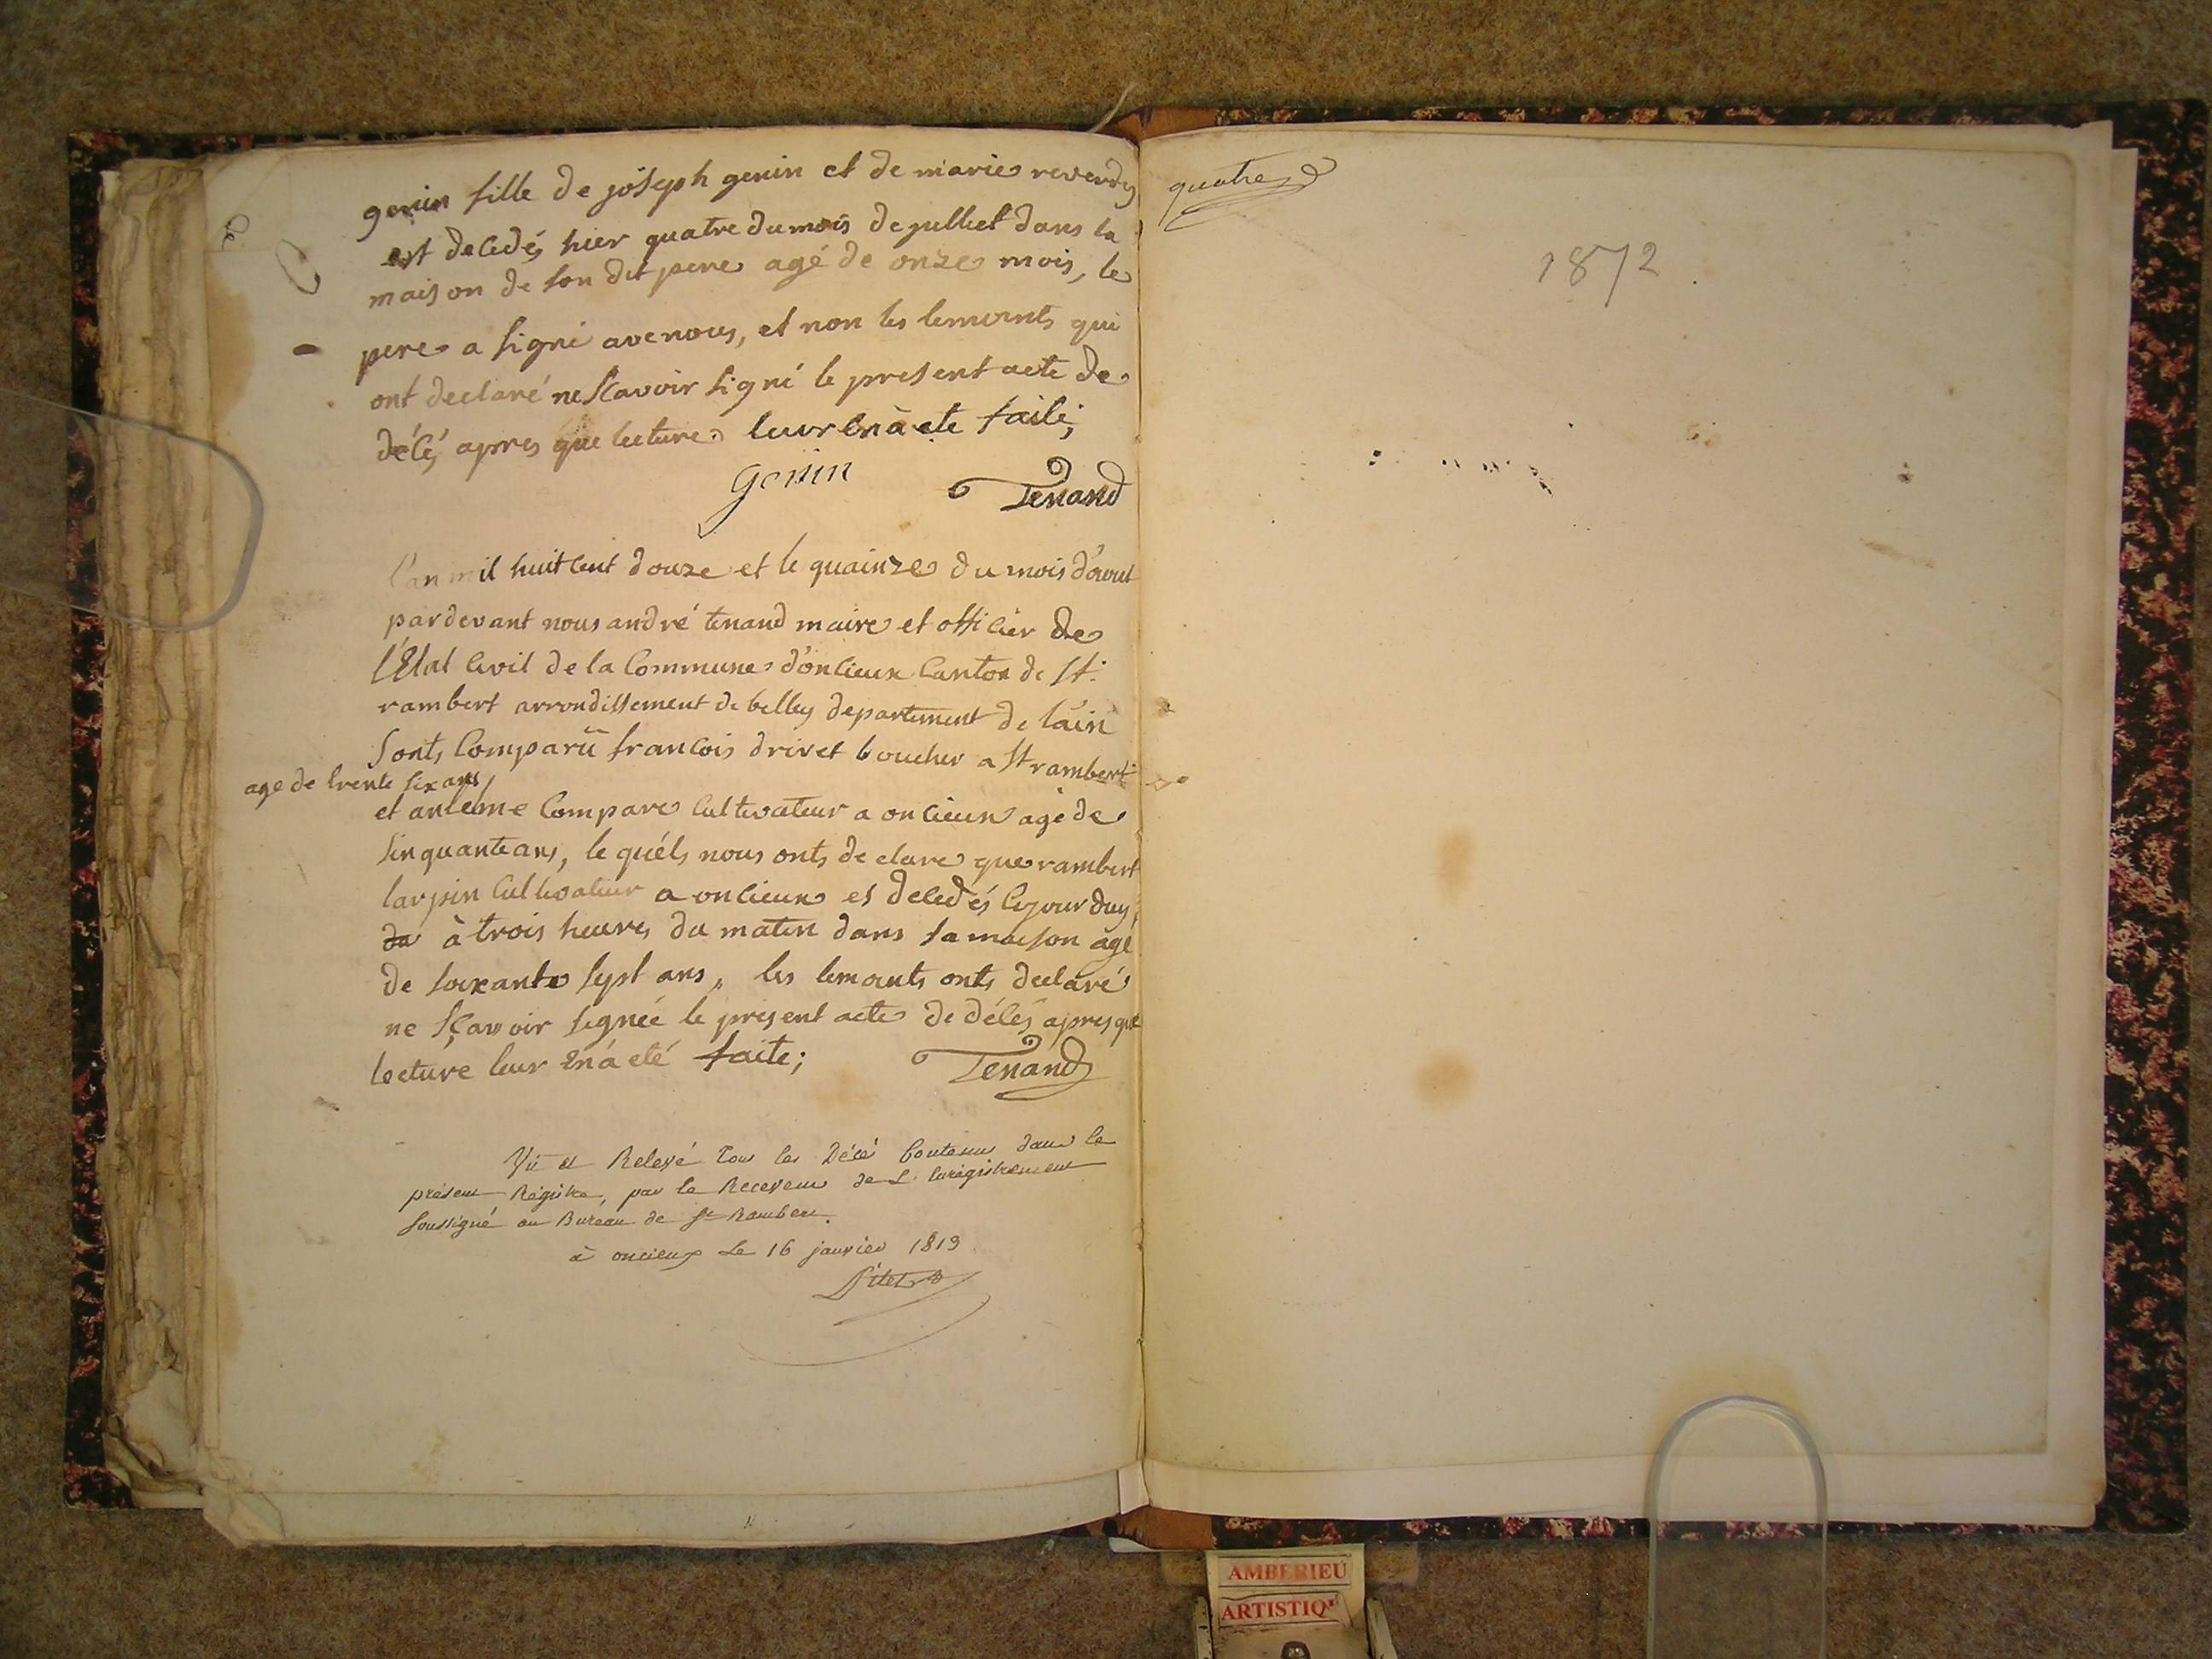 genin fille de joseph genin et de marie reverdy
est decedés hier quatre du mois de juillet dans la
maison de son dit pere agé de onze mois, le
pere a signé avec nous, et non les temoints qui
ont declaré ne scavoir signé le present acte de
décés apres que lecture leur en à ete faite;
genin
Tenand
l'an mil huit cent douze et le quainze du mois d'aout
par devant nous andré tenand maire et officier de
l'Etat Civil de la Commune d'oncieux Canton de St.
rambert arrondissement de belley departement de l'ain
Sonts Comparu francois drivet boucher a St rambert
age de trente six ans,
et anteme Compare Cultivateur a oncieux agé de
sinquante ans, le quéls nous onts declare que rambert
larpin Cultivateur a oncieux es decedés Ce jour duy
à trois heures du matin dans sa maison agé
de soixante sept ans, les temoints onts declaré
ne sçavoir signée le present acte de décés apres que
lecture leur en á eté faite;
Tenand
Vu et Relevé tous les Décés Contenus dans le
présent Régistre, par le Receveur de L'enrégistrement
soussigné au Buréau de St Rambert.
à oncieux Le 16 janvier 1813
quatre
1872
AMBERIEU
ARTISTIQ